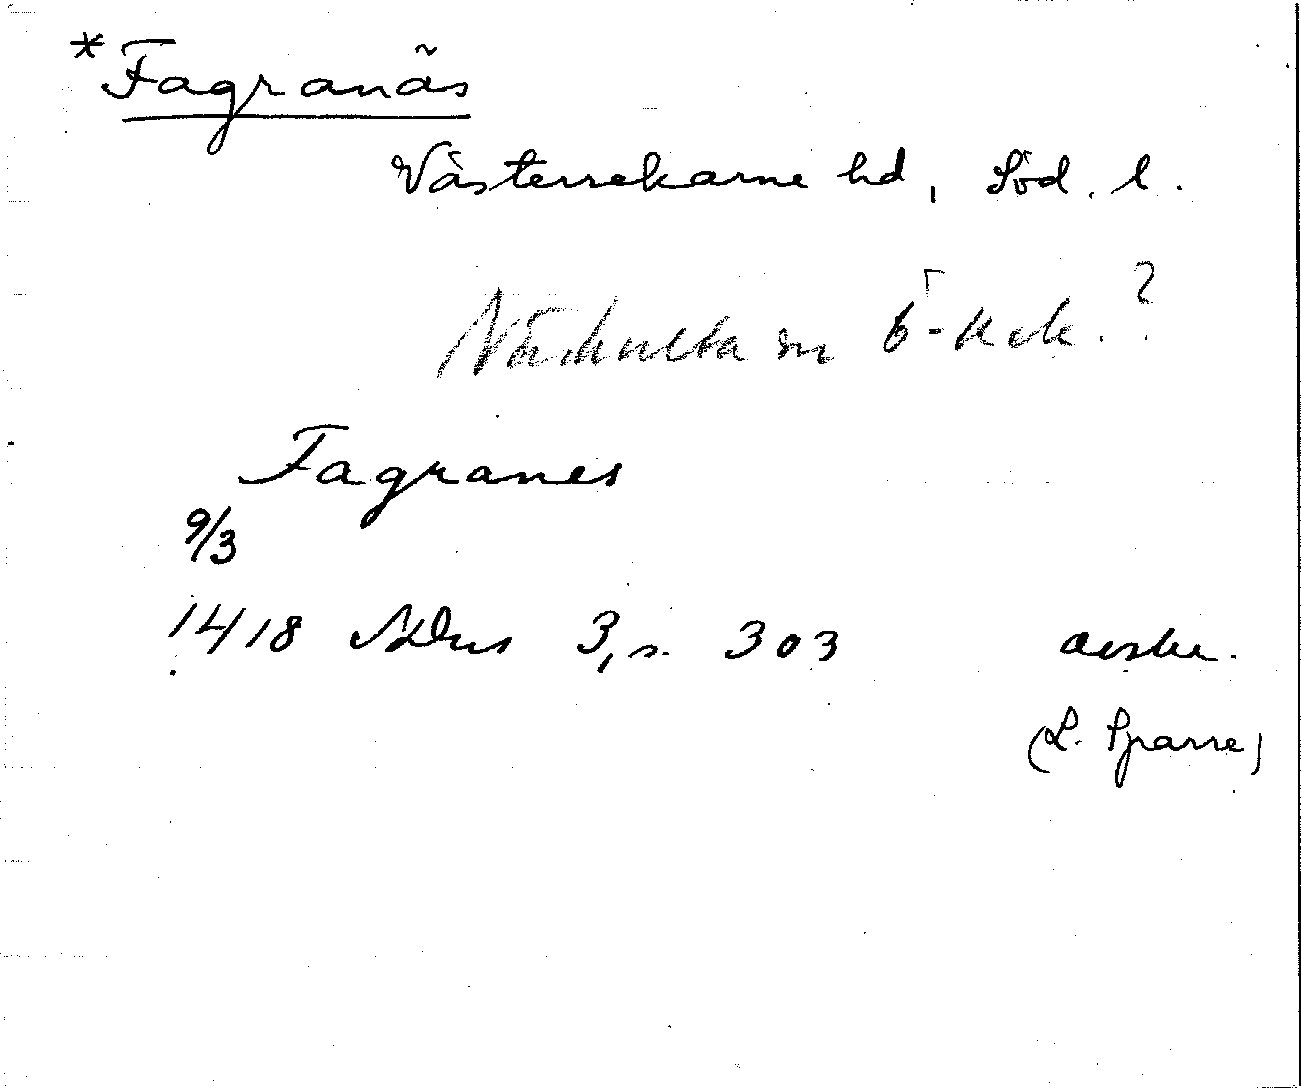 *Fagranäs
Västerrekarne hd, Söd. l.
Näshulta sn Ö-rek.?
Fagranes
9/3
1418 SDns 3, s. 303 avskr.
(L. Sparre)